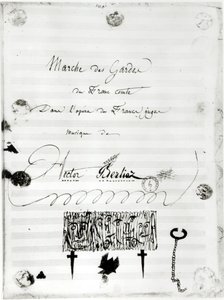 Marche des Gardes
du Franc comte
Dans l'opera des Francs juges
musique de
Hector Berlioz